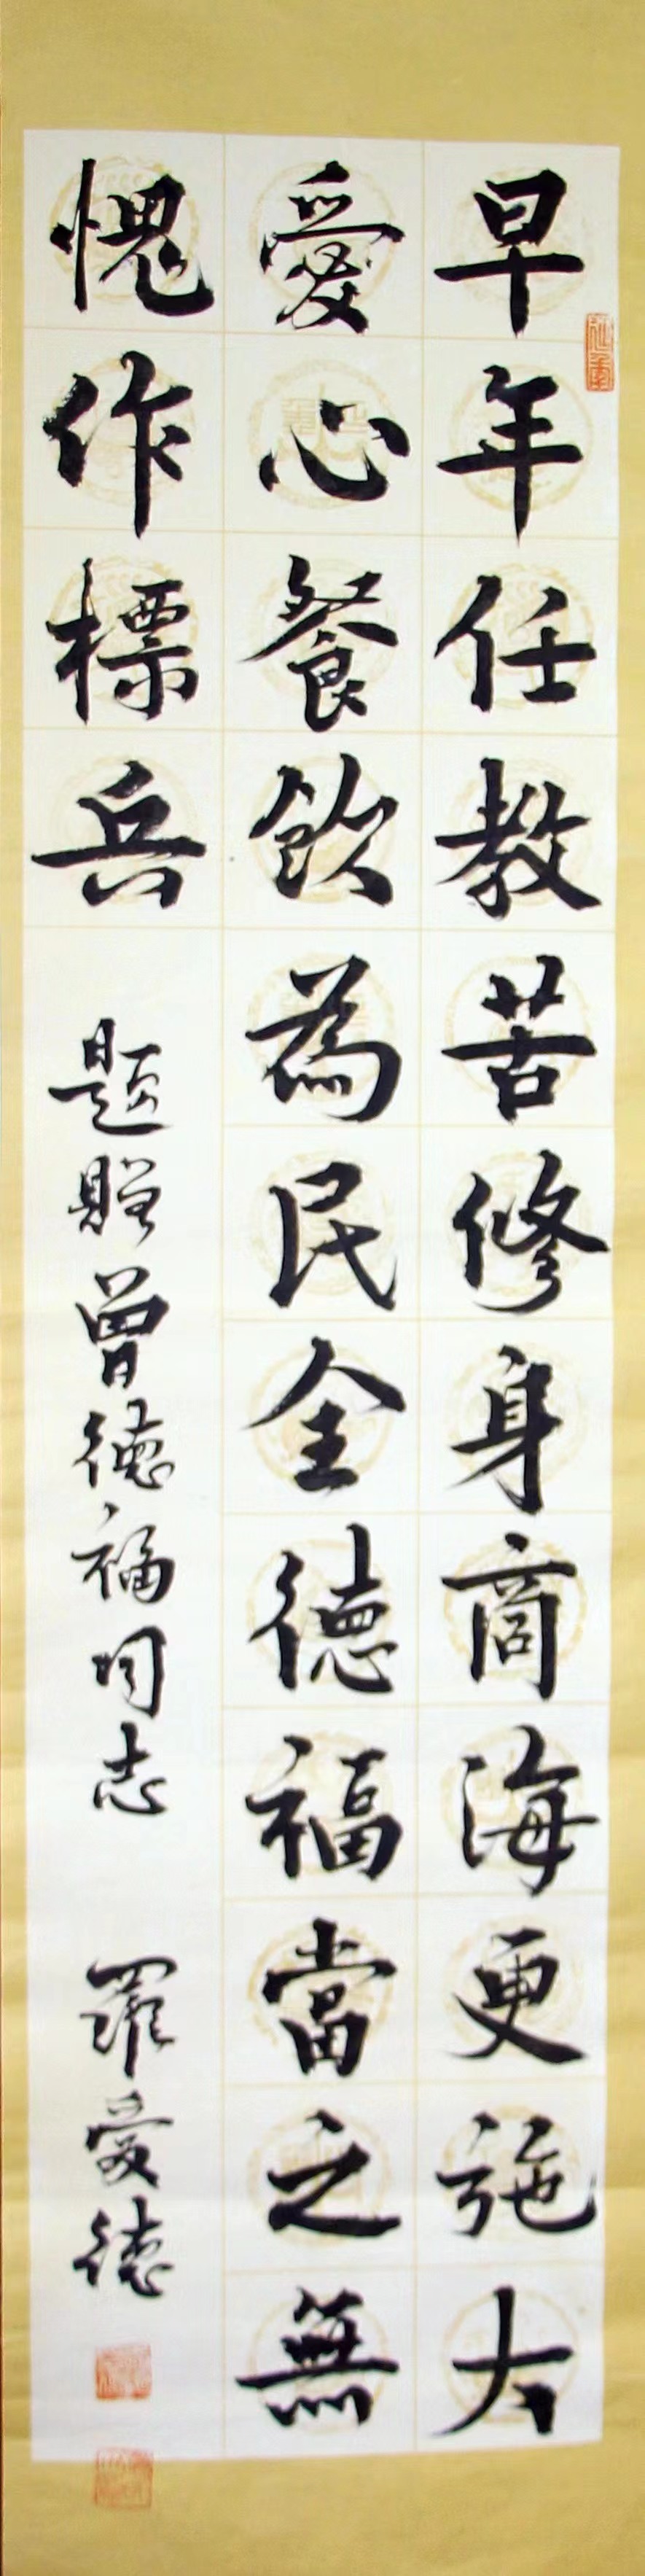 早年任教苦修身商海更施大
愛心餐飲為民全德福當之無
愧作標兵
題贈曾德福同志
羅愛德